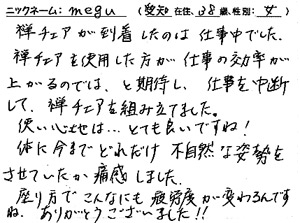 ニックネーム: megu (愛知在住、38歳、性別: 女)
禅チェアが到着したのは仕事中でした。
禅チェアを使用した方が仕事の効率が
上がるのでは、と期待し、仕事を中断
して、禅チェアを組み立てました。
使い心地は…とても良いですね!
体に今までどれだけ不自然な姿勢を
させていたか痛感しました。
座り方でこんなにも疲労度が変わるんです
ね。ありがとうございました!!